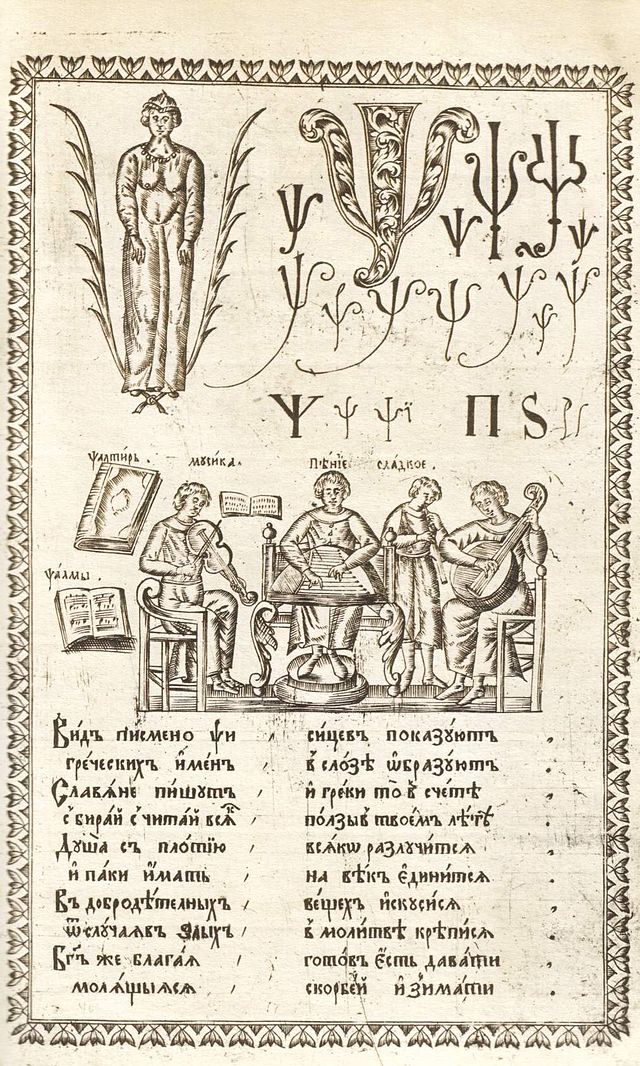 Ѱ ѱ ѱї П S ps
ѱалтирь. мусика. пѣнїе сладкое.
ѱалмы.
Видъ писмено ѱи , сицевъ показуютъ ,
греческихъ имен , в слозѣ ѡбразуютъ .
Славяне пишутъ , и греки то в счетѣ ,
сбирай считай вся , ползы в твоем лѣтѣ .
Душа съ плотїю , всякѡ разлучится ,
и паки имать , на вѣкъ единится .
Въ добродѣтелныхъ , вещехъ искусися ,
ѿ случаявъ злыхъ , в молитвѣ крѣпися .
Бг҃ъ же благая , готовъ есть давати ,
молящыяся , скорбей изимати .